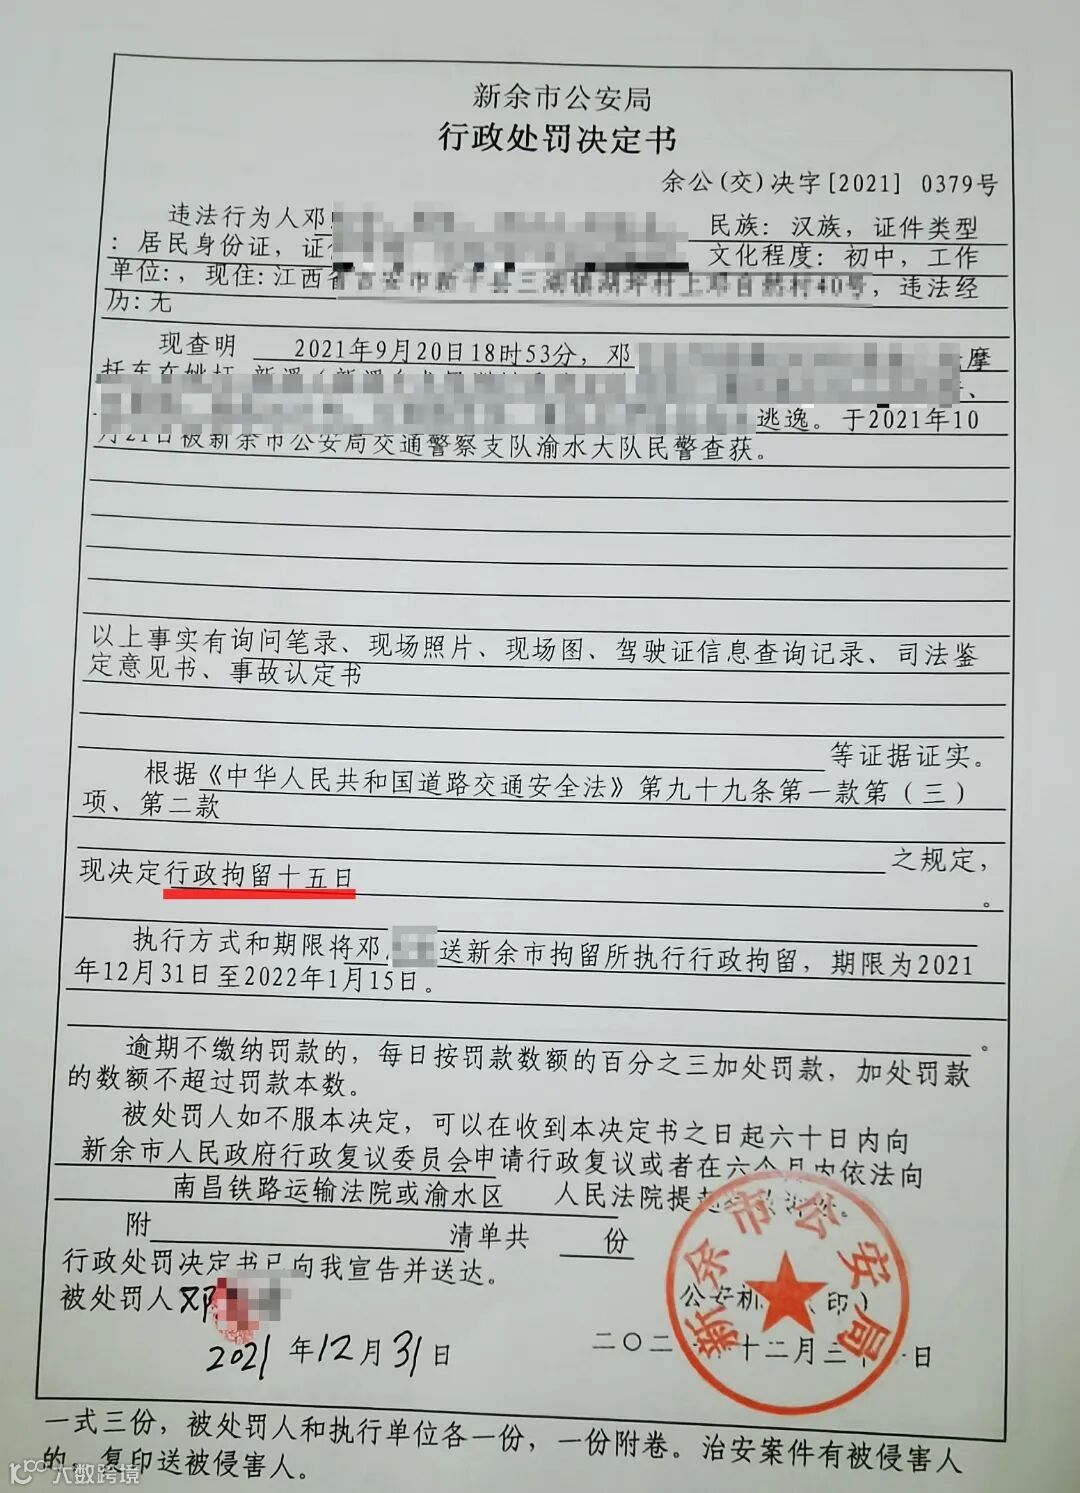 新余市公安局
行政处罚决定书
余公(交)决字[2021] 0379号
违法行为人邓 民族：汉族，证件类型
：居民身份证， 文化程度：初中，工作
单位：，现住：江西省 三湖镇湖坪村上邓自然村40号，违法经
历：无
现查明 2021年9月20日18时53分，邓 摩
托车在姚圩 、
逃逸。于2021年10
月21日被新余市公安局交通警察支队渝水大队民警查获。
以上事实有询问笔录、现场照片、现场图、驾驶证信息查询记录、司法鉴
定意见书、事故认定书
等证据证实。
根据《中华人民共和国道路交通安全法》第九十九条第一款第（三）
项、第二款
之规定，
现决定行政拘留十五日
。
执行方式和期限将邓 送新余市拘留所执行行政拘留，期限为2021
年12月31日至2022年1月15日。
。
逾期不缴纳罚款的，每日按罚款数额的百分之三加处罚款，加处罚款
的数额不超过罚款本数。
被处罚人如不服本决定，可以在收到本决定书之日起六十日内向
新余市人民政府行政复议委员会申请行政复议或者在六个月内依法向
南昌铁路运输法院或渝水区 人民法院提起 。
附 清单共 份
行政处罚决定书已向我宣告并送达。
被处罚人 邓 公安机 （印）
2021年12月31日 二〇二 十二月三十一日
新余市公安局
一式三份，被处罚人和执行单位各一份，一份附卷。治安案件有被侵害人
的，复印送被侵害人。
大数跨境